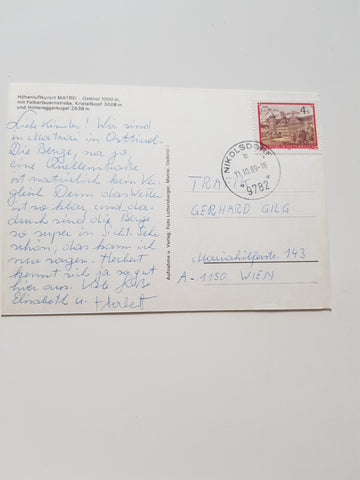 Höhenluftkurort MATREI - Osttirol 1000 m,
mit Felbertauernstraße, Kristallkopf 3008 m
und Hintereggerkogel 2638 m
Liebe Kinder! Wir sind
in Matrei in Osttirol.
Die Berge, na ja
eine Quellenstraße
ist natürlich kein Ver-
gleich. Denn das Wetter
ist so klar und da-
durch sind die Berge
so super in Sicht. Sehr
schön, das kann ich
nur sagen. Herbert
kennt sich ja so gut
hier aus. Viele Grüße
Elisabeth u. Herbert
Aufnahme u. Verlag: Foto Lottersberger, Matrei, Osttirol
4 S
REPUBLIK ÖSTERREICH
NIKOLSDORF
b
11.10.89-18
9782
GERHARD GILG
Mariahilferstr. 143
A-1150 WIEN